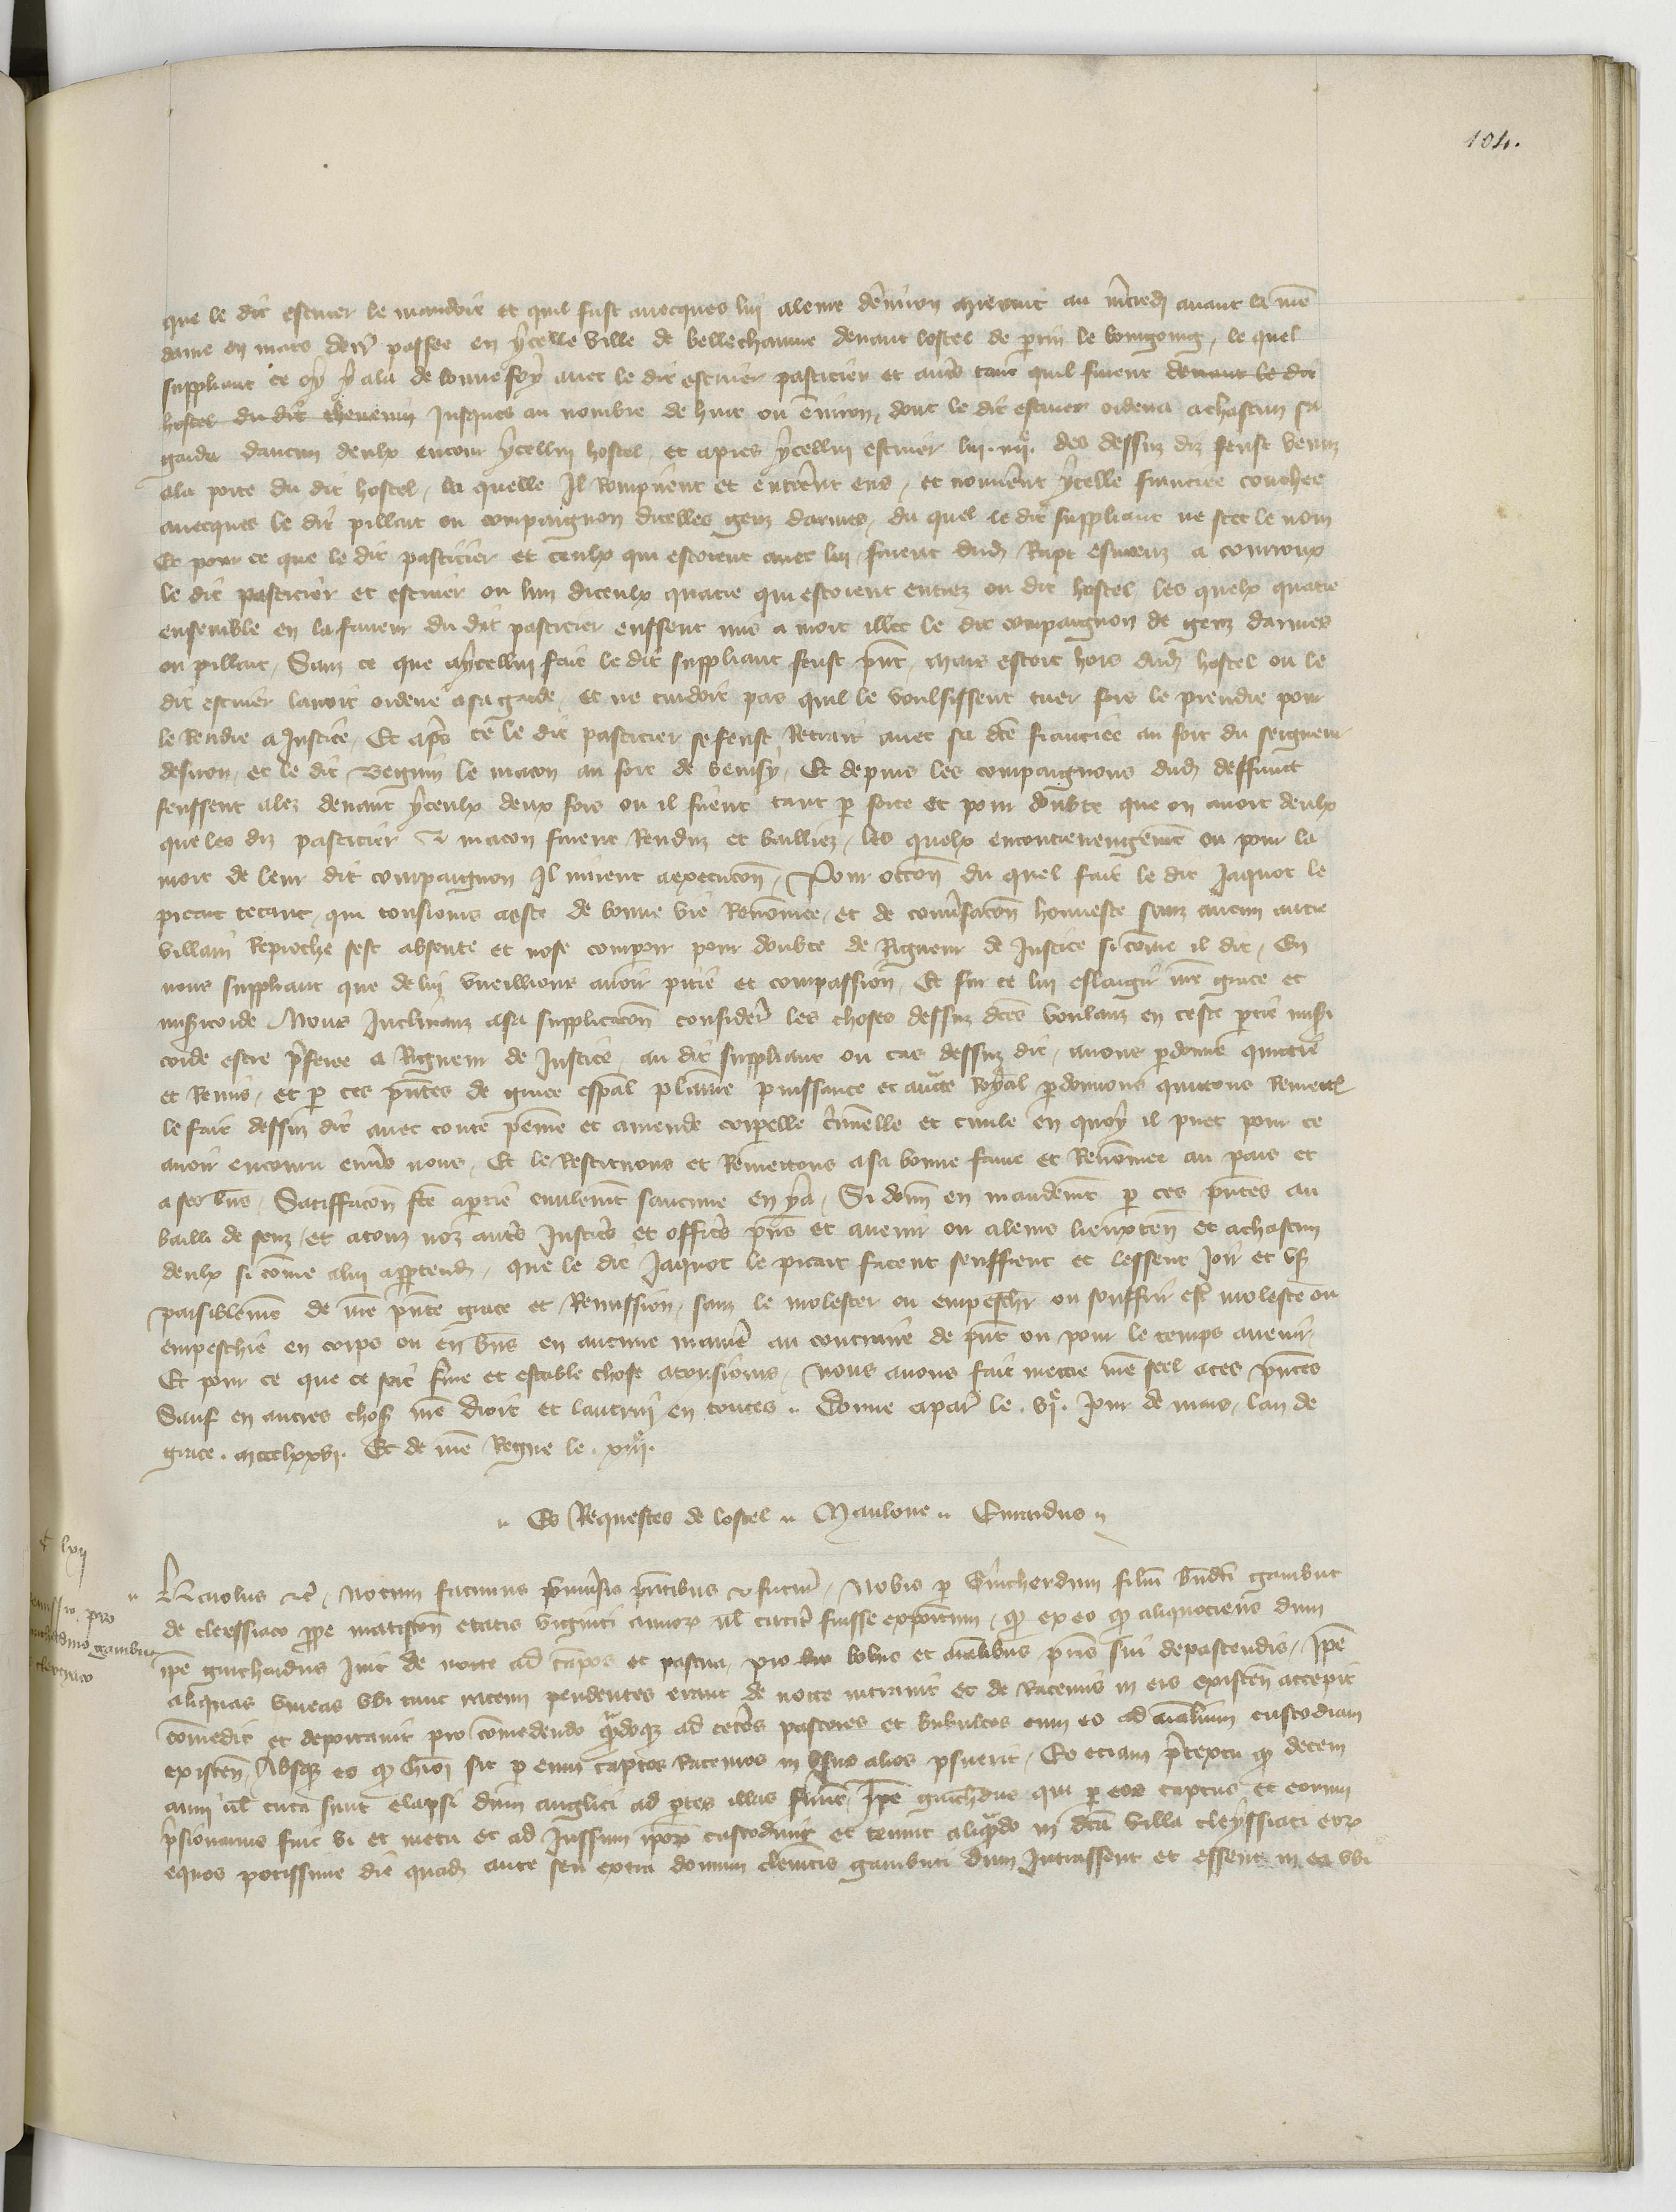 104.
que le dit escuier le mandoit et quil fust avecques lui alenv̄ denviron mienuit au mercredi avant la nr̄e
dame en mars derr̄ passee en ycelle ville de bellechaume devant lostel de perrin le bourgoing, le quel
suppliant ce oy y ala de bonne foy avec le dit escuier pasticier et autres tant quil furent devant le dit
hostel du dit thevenin Jusques au nombre de huit ou environ, dont le dit escuier ordena a chascun sa
garde daucun deulx entour ycellui hostel, et apres ycellui escuier lui .iiije. des dessus diz feust venuz
ala porte du dit hostel, la quelle Il Rompirent et entrerent ens, et trouverent ycelle fianciee couchee
avecques le dit pillart ou compaignon dicelles gens darmes, du quel le dit suppliant ne scet le nom
Et pour ce que le dit pasticier et ceulx qui estoient avec lui, furent dud Rapt esmeuz a courroux
le dit pasticier et escuier ou lun diceulx quatre qui estoient entrez ou dit hostel, les quelx quatre
ensemble en la faveur du dit pasticier eussent mis a mort illec le dit compaignon de gens darmes
ou pillart, Sanz ce que aycellui fait le dit suppliant feust pn̄t, mais estoit hors dud hostel ou le
dit escuier lavoit ordené asa garde, et ne cuidoit pas quil le voulsissent tuer fors le prendre pour
le Rendre a Justice, Et apres ce le dit pasticier se feust Retrait avec sa dc̄e fianciee au fort du seigneur
desnon, et le dit Seguin le macon au fort de venisy, Et depuis les compaignons dud deffunct
feussent alez devant yceulx deux fors ou il furent tant par force et pour doubte que on avoit deulx
que les diz pasticier & macon furent Renduz et bailliez, les quelx encontrevengement ou pour la
mort de leur dit compaignon Il mirent a execucōn, Pour occōn du quel fait le dit Jaquot le
picart tecaut, qui tousiours aeste de bonne vie Renōmee, et de conversacōn honneste sanz aucun autre
villain Reproche sest absente et nose comparoir pour doubte de Rigueur de Justice si cōme il dit, En
nous suppliant que de lui vueillions avoir pitié et compassion, Et sur ce lui eslargir nr̄e grace et
misericorde Nous Inclinanz asa supplicacōn considere les choses dessus dc̄es voulanz en ceste partie miseri
corde estre preferee a Rigueur de Justice, au dit suppliant ou cas dessus dit, avons pardonné quictié
et Remis, et par ces pn̄tes de grace esp̄al plainne puissance et auctē Royal pardonnons quictons Remett
le fait dessus dit avec toute peinne et amende corporelle crīminelle et civile en quoy il puet pour ce
avoir encouru envers nous, Et le Restituons et Remettons asa bonne fame et Renōmee au pais et
a ses biens, Satisfacōn fc̄e apartie civilement saucune en ya, Si donn en mandement par ces pn̄tes au
bailli de senz, et atouz noz autres Justices et officiers pn̄s et avenir ou aleurs lieuxten et achascun
deulx si cōme alui appartend, que le dit Jaquot le picart facent seuffrent et lessent Joir et user
paisiblement de nr̄e pn̄te grace et Remission, sanz le molester ou empescher ou souffrir estre molesté ou
empeschié en corps ou en biens en aucune maniere au contraire de pn̄t ou pour le temps avenir,
Et pour ce que ce soit ferme et estable chose atousiours, nous avons fait mettre nr̄e seel aces pn̄tes
Sauf en autres choses nr̄e droit et lautrui en toutes. Donne a paris le .vje. Jour de mars, lan de
grace .mccclxxvj. Et de nr̄e Regne le .xiije.
Es Requestes de lostel Maulone Evrardus
c lxij
Remissio pro
Guichardus gambut
cleyssiaco
Karolus etc, Notum facimus universis pn̄tibus & futuris, Nobis per Guicherdum filiū bn̄dcī gambut
de cleessiaco prope matiscon etatis viginti annorum vl circiter fuisse expositum, quod ex eo quod aliquociens dum
ip̄e guichardus Ivit de nocte ad campos et pascua, pro bobus et aīalibus patris sui depascendis, Ip̄e
aliquas vineas ubi tunc racemi pendentes erant de nocte intravit et de Racemis in eis existen accepit
cōmedit et deportavit pro cōmedendo quandoque ad ceteros pastores et bubulcos cum eo ad aīalium custodiam
existen, Absque eo quod huiusmodi sic per eum captos Racemos in usus alios posuerit, Eo etiam pretextu quod decem
anni vl circa sunt elapsi dum anglici ad partes illas fuerunt, Ip̄e guichardus qui per eos captus et eorum
prisionarius fuit vi et metu et ad Jussum ipsorum custodivit et tenuit aliquando in dc̄a villa cleyssiaci eorum
equos potissime die quad ante seu extra domum clementis gambuti dum Intrassent et essent in ea ubi